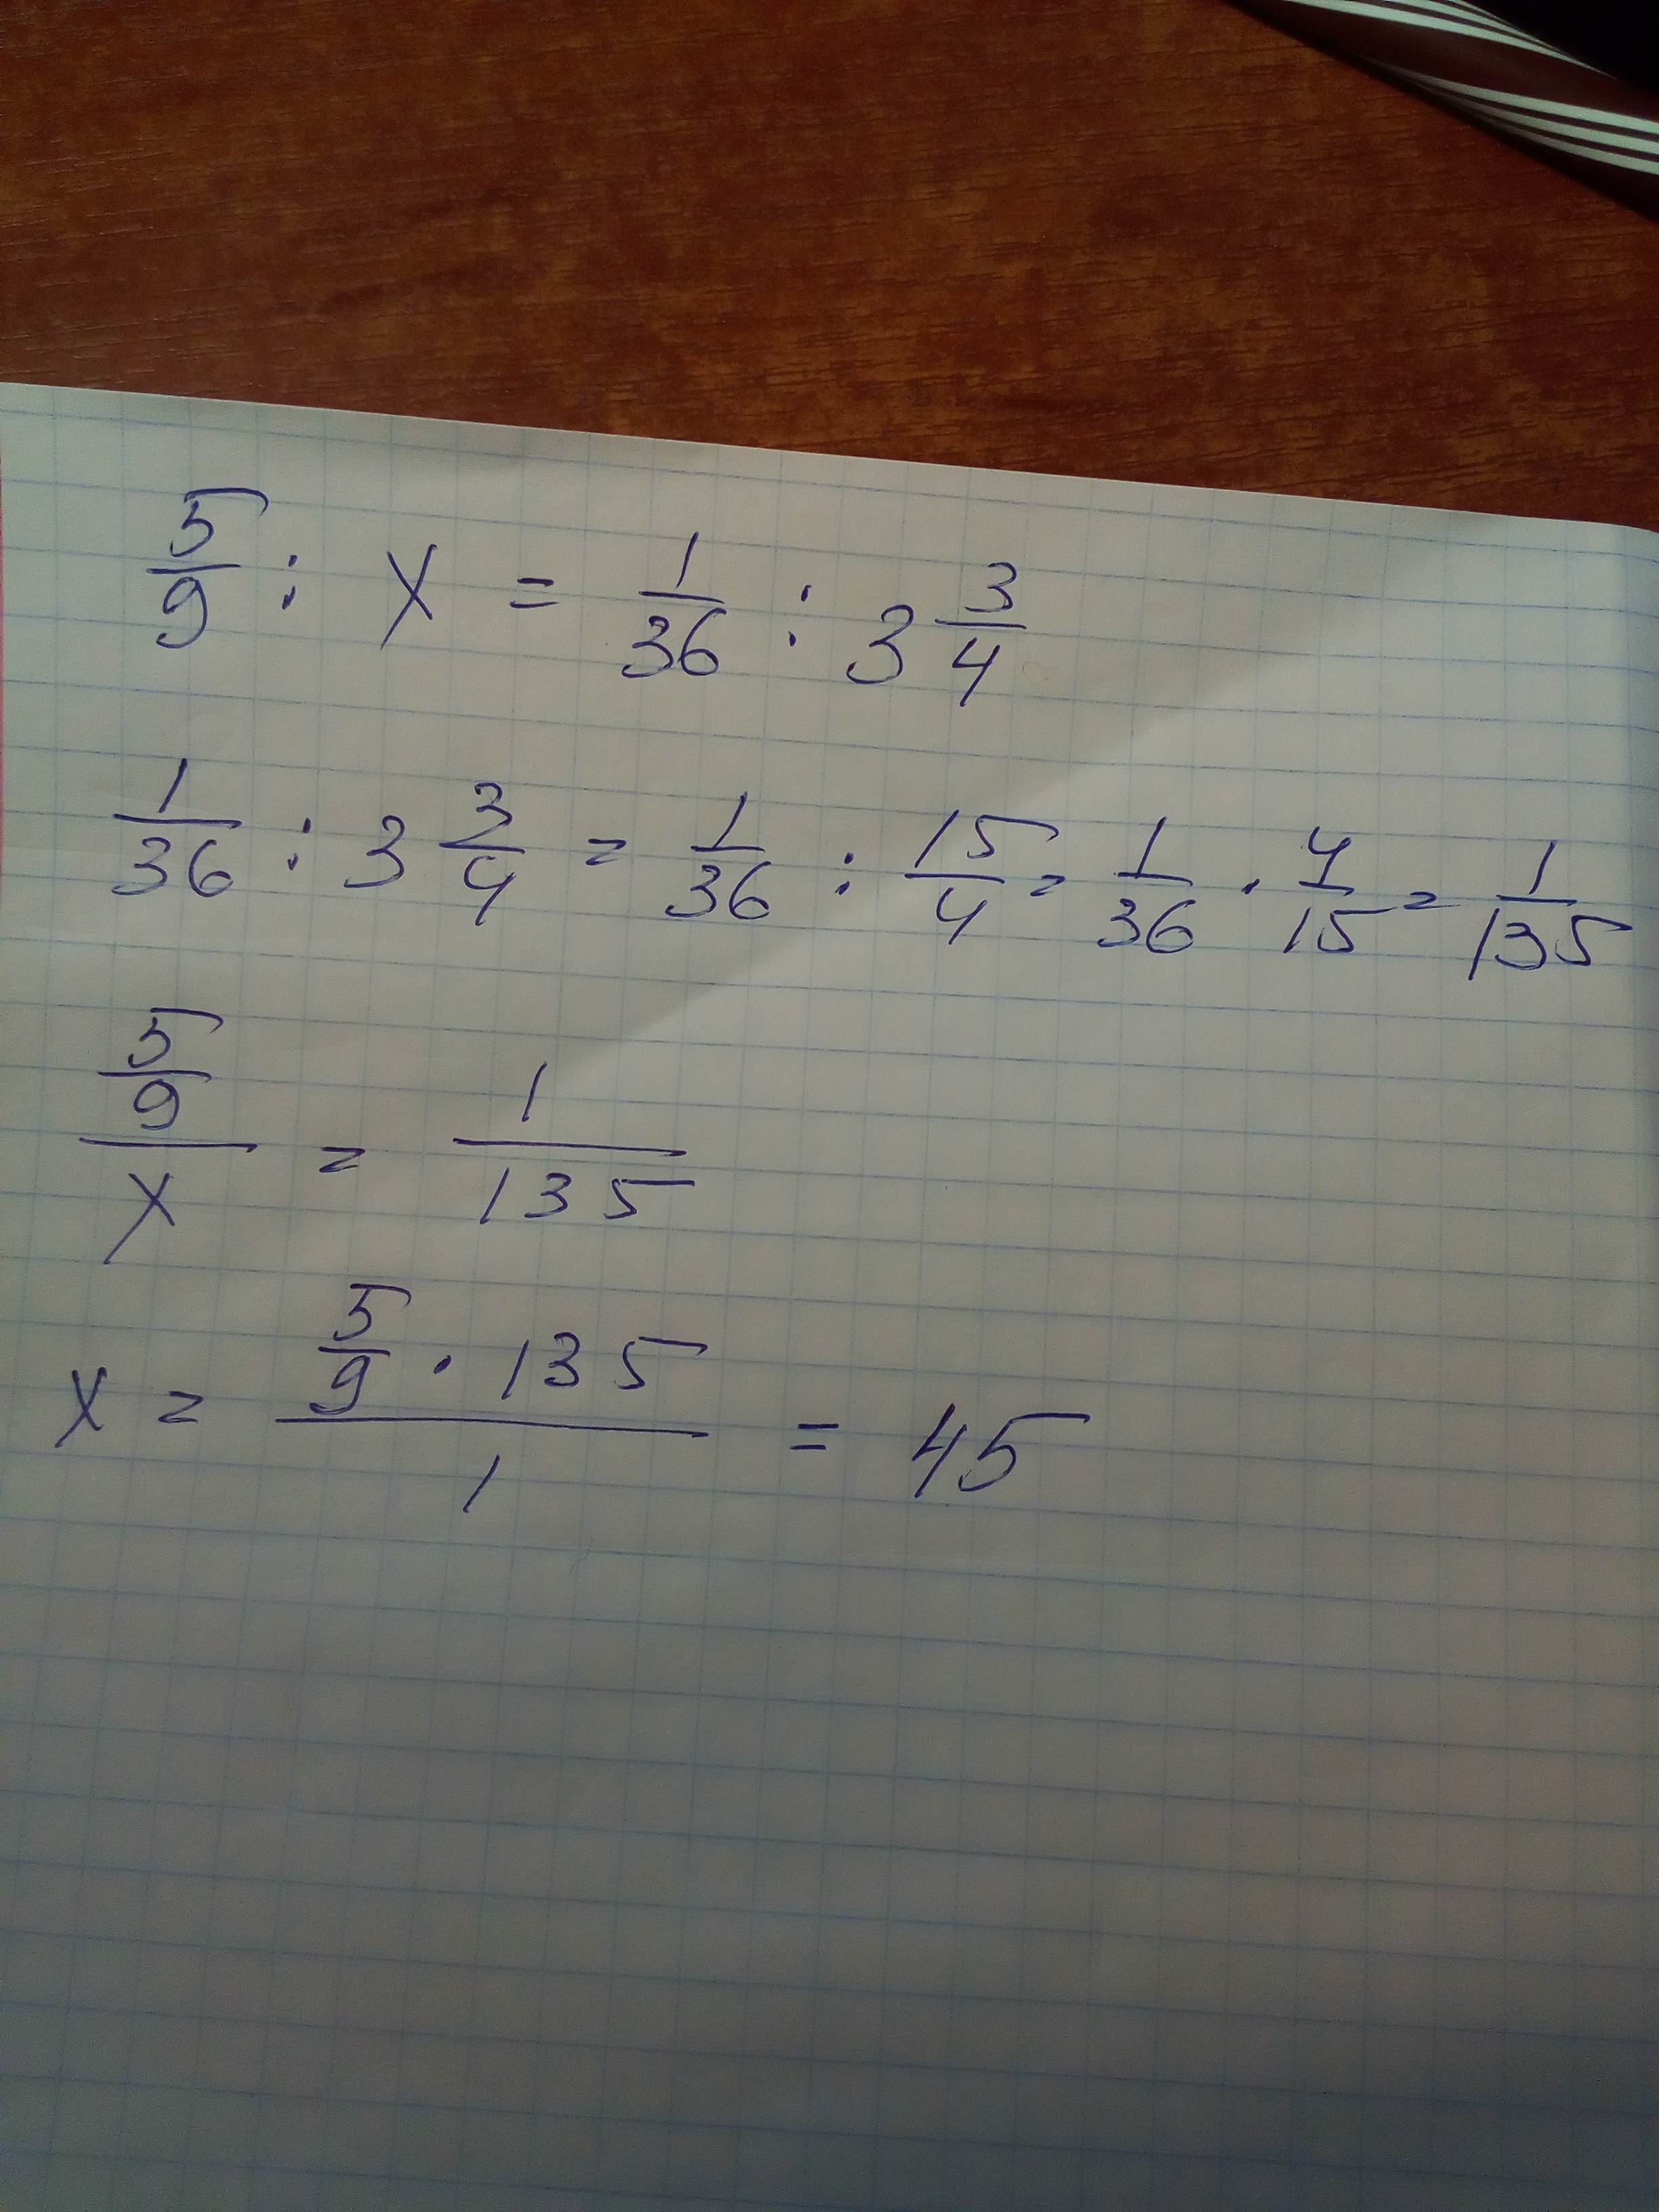 5/9 : x = 1/36 : 3 3/4
1/36 : 3 3/4 = 1/36 : 15/4 = 1/36 · 4/15 = 1/135
5/9 / x = 1/135
x = 5/9 · 135 / 1 = 45